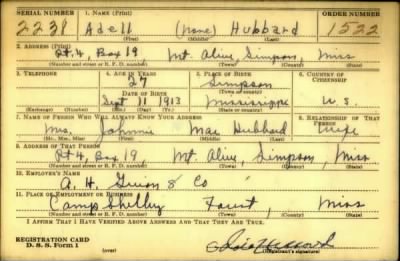 SERIAL NUMBER 1. NAME (Print) ORDER NUMBER
2238 Adell (None) Hubbard 1522
(First) (Middle) (Last)
2. ADDRESS (Print)
Rt. 4, Box 19 Mt. Olive, Simpson, Miss
(Number and street or R. F. D. number) (Town) (County) (State)
3. TELEPHONE 4. AGE IN YEARS 5. PLACE OF BIRTH 6. COUNTRY OF CITIZENSHIP
27 Simpson
DATE OF BIRTH (Town or county)
Sept 11 1913 Mississippi U. S.
(Exchange) (Number) (Mo.) (Day) (Yr.) (State or country)
7. NAME OF PERSON WHO WILL ALWAYS KNOW YOUR ADDRESS 8. RELATIONSHIP OF THAT PERSON
Mrs. Johnnie Mae Hubbard Wife
(Mr., Mrs., Miss) (First) (Middle) (Last)
9. ADDRESS OF THAT PERSON
Rt 4, Box 19 Mt. Olive, Simpson, Miss
(Number and street or R. F. D. number) (Town) (County) (State)
10. EMPLOYER'S NAME
A. H. & Co
11. PLACE OF EMPLOYMENT OR BUSINESS
Camp Shelby Miss
(Number and street or R. F. D. number) (Town) (County) (State)
I AFFIRM THAT I HAVE VERIFIED ABOVE ANSWERS AND THAT THEY ARE TRUE.
REGISTRATION CARD
D. S. S. Form 1 (over) (Registrant's signature)